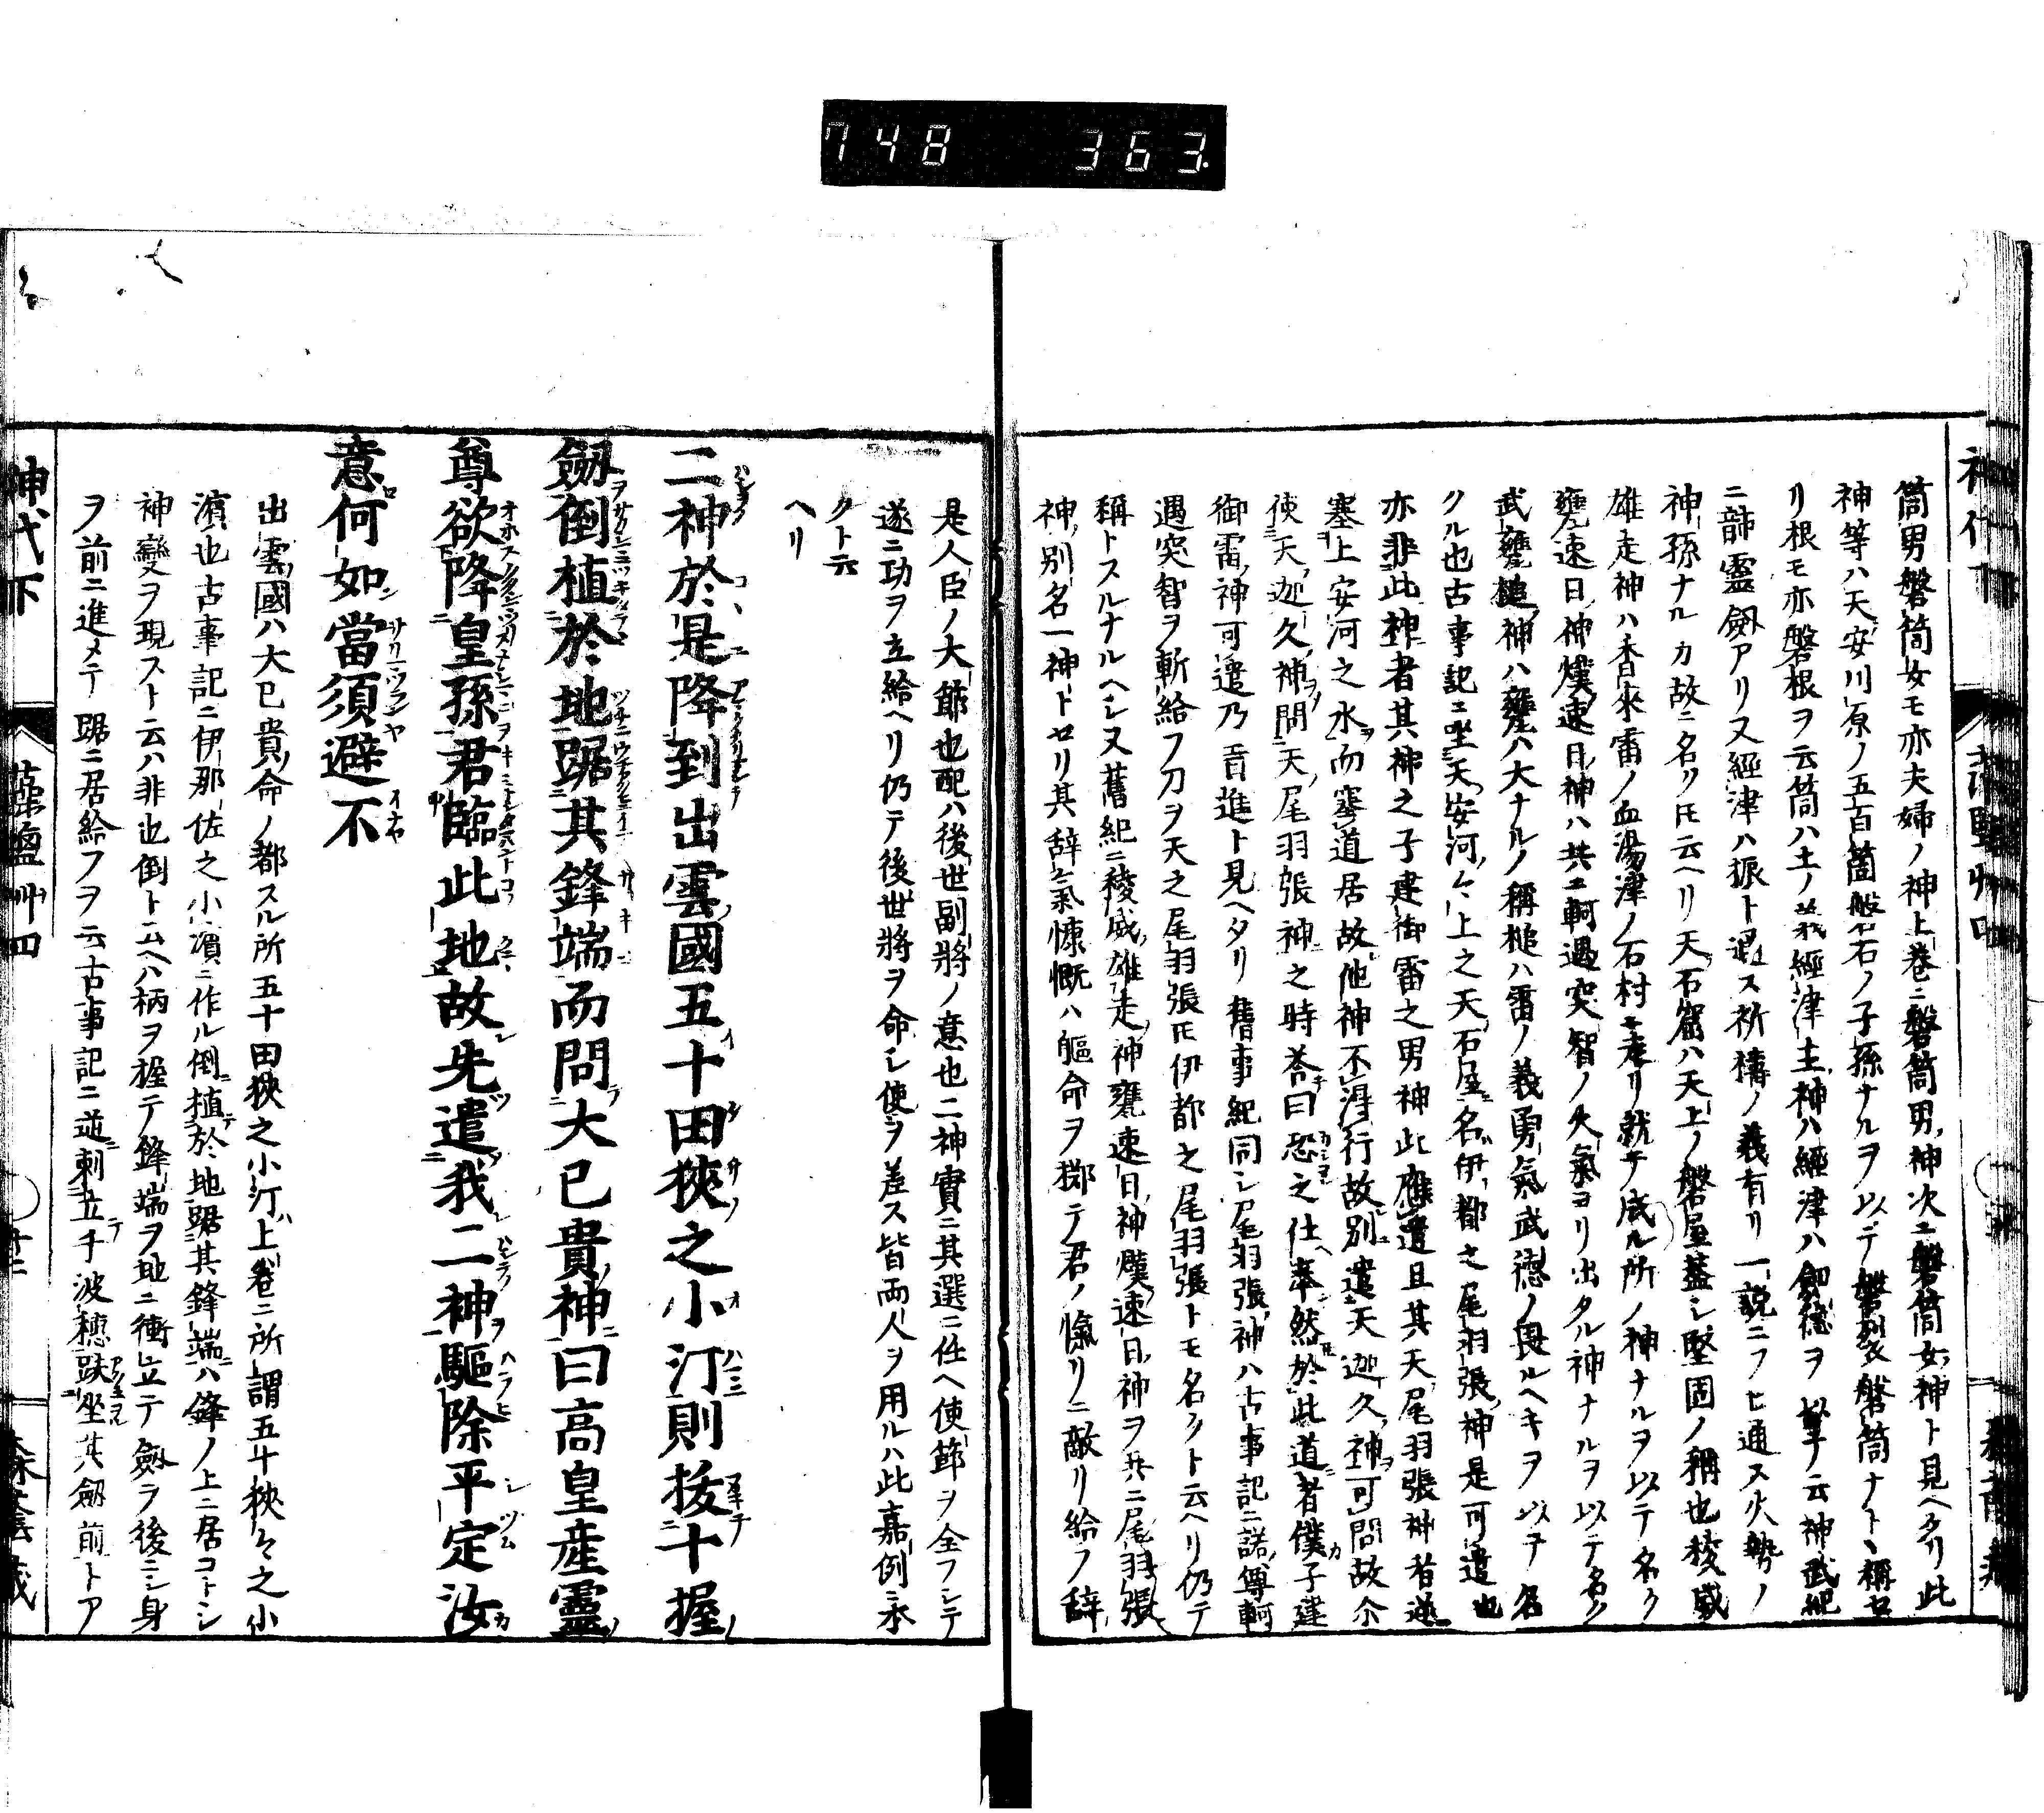 748 363.
筒男磐筒女モ亦夫婦ノ神上巻ニ磐筒男神次ニ磐筒女神ト見ヘタリ此
神等ハ天安川原ノ五百箇磐石ノ子孫ナルヲ以テ磐裂磐筒ナトヽ稱セ
リ根モ亦磐根ヲ云筒ハ土ノ義經津主神ハ經津ハ劔德ヲ擧テ云神武紀
ニ韴靈劔アリ又經津ハ振ト通ス祈禱ノ義有リ一説ニフヒ通ス火勢ノ
神孫ナルカ故ニ名クトモ云ヘリ天石窟ハ天上ノ磐屋蓋シ堅固ノ稱也稜威
雄走神ハ香來雷ノ血湯津ノ石村ニ走リ就テ成ル所ノ神ナルヲ以テ名ク
甕速日神熯速日神ハ共ニ軻遇突智ノ火氣ヨリ出タル神ナルヲ以テ名ク
武甕槌神ハ甕ハ大ナルノ稱槌ハ雷ノ義勇氣武德ノ畏ルヘキヲ以テ名
クル也古事記ニ坐天安河々上之天石屋名伊都之尾羽張神是可遣也
亦非此神者其神之子建御雷之男神此應遣且其天尾羽張神者逆
塞上安河之水而塞道居故他神不得行故別遣天迦久神可問故尒
使天迦久神問天尾羽張神之時荅曰恐之仕奉然於此道者僕子建
御雷神可遣乃貢進ト見ヘタリ舊事紀同シ尾羽張神ハ古事記ニ諾尊軻
遇突智ヲ斬給フ刀ヲ天之尾羽張トモ伊都之尾羽張トモ名クト云ヘリ仍テ
稱トスルナルヘシ又舊紀ニ稜威雄走神甕速日神熯速日神ヲ共ニ尾羽張
神別名一神トセリ其辞氣慷慨ハ軀命ヲ擲テ君ノ愾リニ敵リ給フ辞
是人臣ノ大節也配ハ後世副將ノ意也二神實ニ其選ニ任ヘ使節ヲ全フシテ
遂ニ功ヲ立給ヘリ仍テ後世將ヲ命シ使ヲ差ス皆兩人ヲ用ルハ此嘉例ニ永
クト云
ヘリ
二神於是降到出雲國五十田狹之小汀則拔十握
劔倒植於地踞其鋒端而問大已貴神曰高皇産靈
尊欲降皇孫君臨此地故先遣我二神驅除平定汝
意何如當須避不
出雲國ハ大已貴命ノ都スル所五十田狹之小汀上巻ニ所謂五十狹々之小
濱也古事記ニ伊那佐之小濵ニ作ル倒植於地踞其鋒端ハ鋒ノ上ニ居コトシ
神變ヲ現スト云ハ非也倒ト云ヘハ柄ヲ握テ鋒端ヲ地ニ衝立テ劔ラ後ニシ身
ヲ前ニ進メテ踞ニ居給フヲ云古事記ニ逆刺立于波穗趺坐其劔前トア
神代下 藻鹽艸四